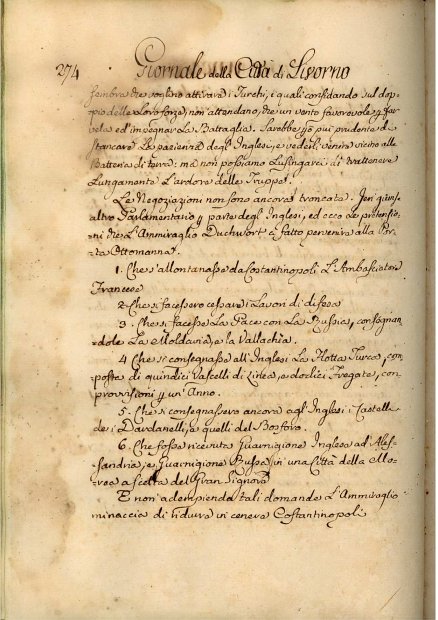 274 Giornale della Città di Livorno
sembra che voglino attivarvi i Turchi, i quali confidando sul dop-
pio delle Loro forze, non attendano, che un vento favorevole p far
vela, ed impegnar La Battaglia. Sarebbe più prudente di
stancare La pazienza degl' Inglesi, e vederli venire vicino alle
Batterie di terra: ma non possiamo Lusingarci di trattenere
Lungamente L'ardore delle Truppe.
Le Negoziazioni non sono ancora troncate. Jeri giunse
altro Parlamentario p parte degl' Inglesi, ed ecco Le pretensio-
ni che L'Ammiraglio Duchwort à fatto pervenire alla Por-
ta Ottomanna.
1. Che s'allontanasse da Costantinopoli L'Ambasciatore
Francese
2. Che si facessero cessare i Lavori di difesa
3. Che si facesse La Pace con La Russia, consegnan-
dole La Moldavia, e la Vallachia.
4 Che si consegnasse all' Inglesi La Flotta Turca, com
posta di quindici Vascelli di Linea, e dodici Fregate, con
provvisioni p un' Anno.
5. Che si consegnassero ancora agl' Inglesi i Castelli
dei Dardanelli, e quelli del Bosforo.
6. Che fosse ricevuta Guarnigione Inglese ad Ales-
sandria, e Guarnigione Russa in una Città della Mo-
rea a scelta del Gran Signore
E non adempiendo tali domande L'Ammiraglio
minaccia di ridurre in cenere Costantinopoli